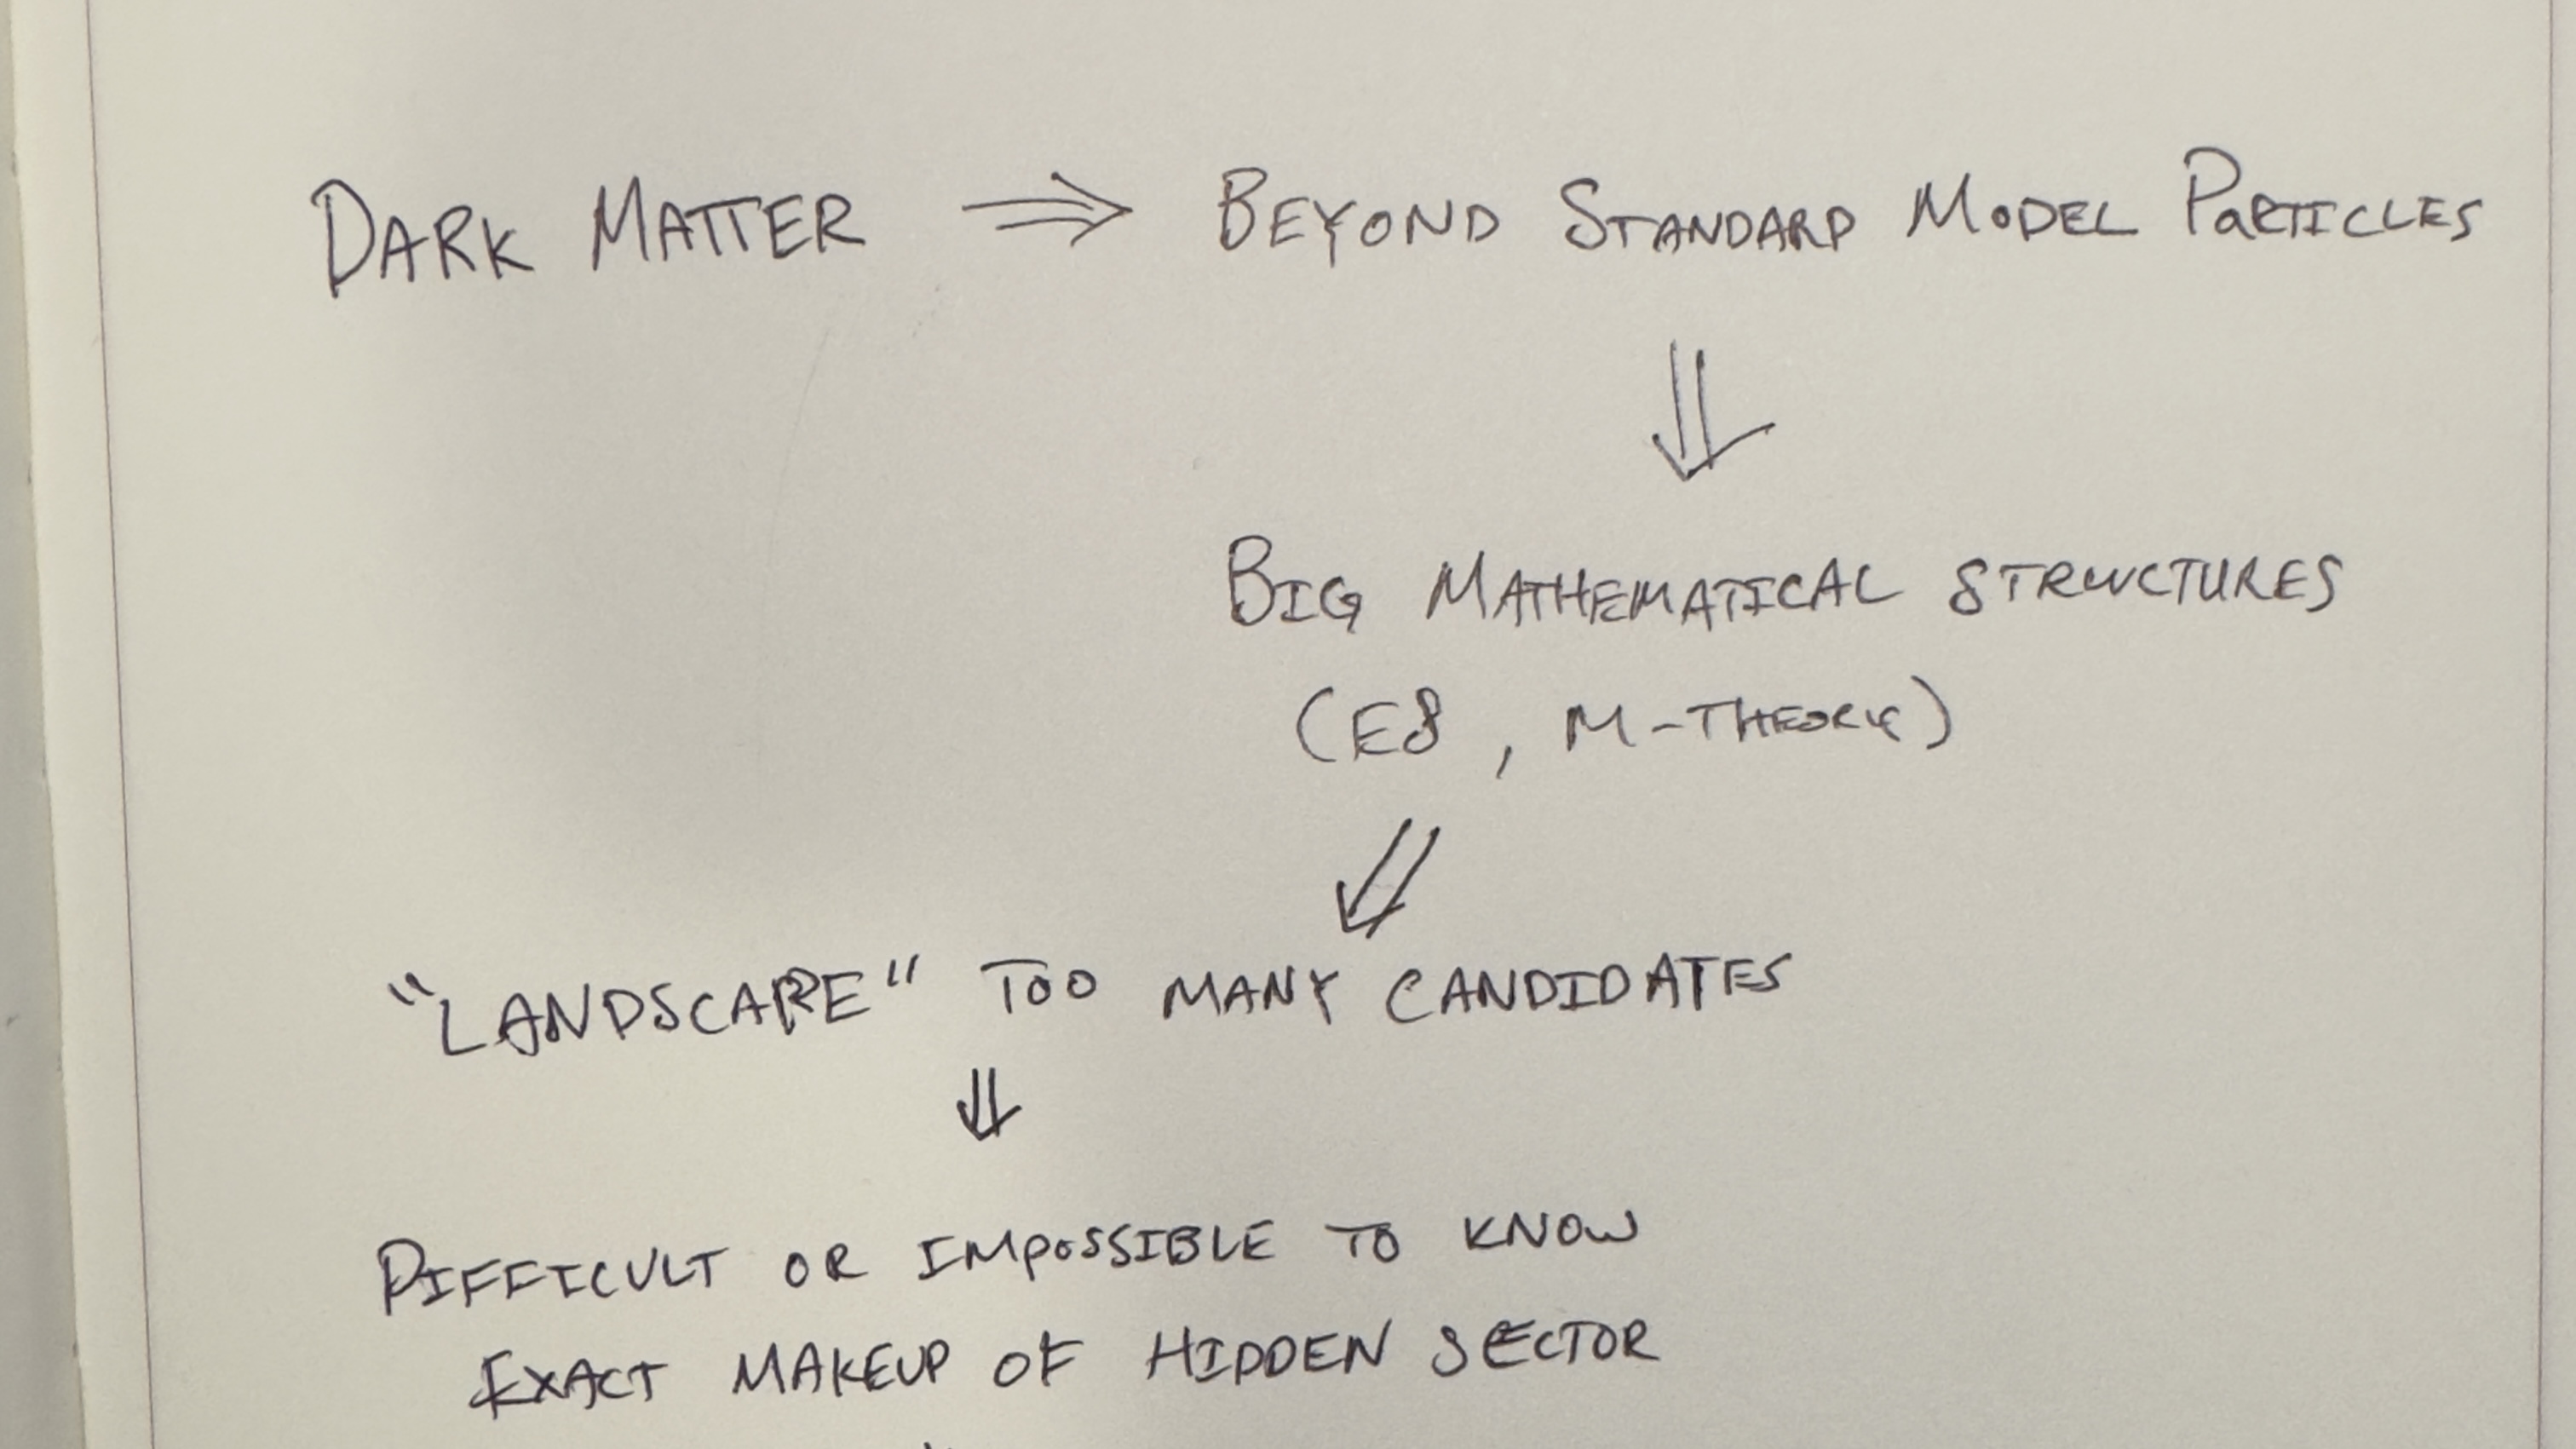 DARK MATTER ⇒ BEYOND STANDARD MODEL PARTICLES
⇓
BIG MATHEMATICAL STRUCTURES
(E8, M-THEORY)
⇓
"LANDSCAPE" TOO MANY CANDIDATES
⇓
DIFFICULT OR IMPOSSIBLE TO KNOW
EXACT MAKEUP OF HIDDEN SECTOR